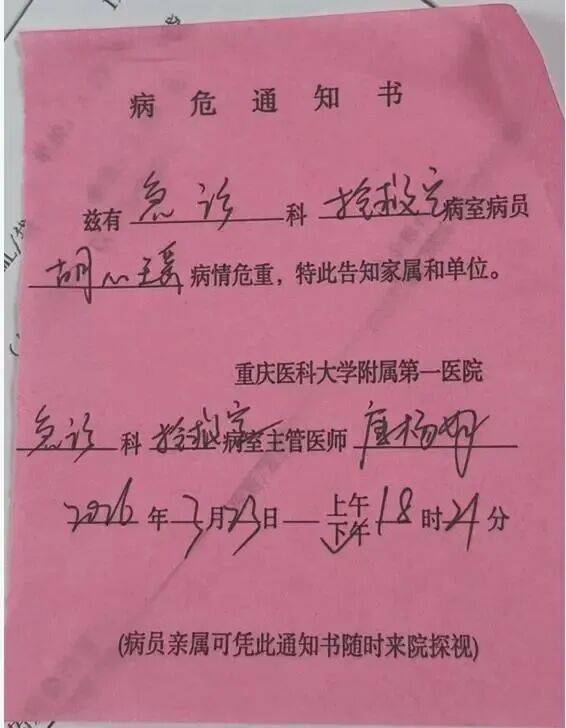 病危通知书
兹有 急诊 科 抢救室 病室病员
胡心瑗 病情危重，特此告知家属和单位。
重庆医科大学附属第一医院
急诊 科 抢救室 病室主管医师
2026 年 3 月 23 日 上午
下午 18 时 24 分
(病员亲属可凭此通知书随时来院探视)